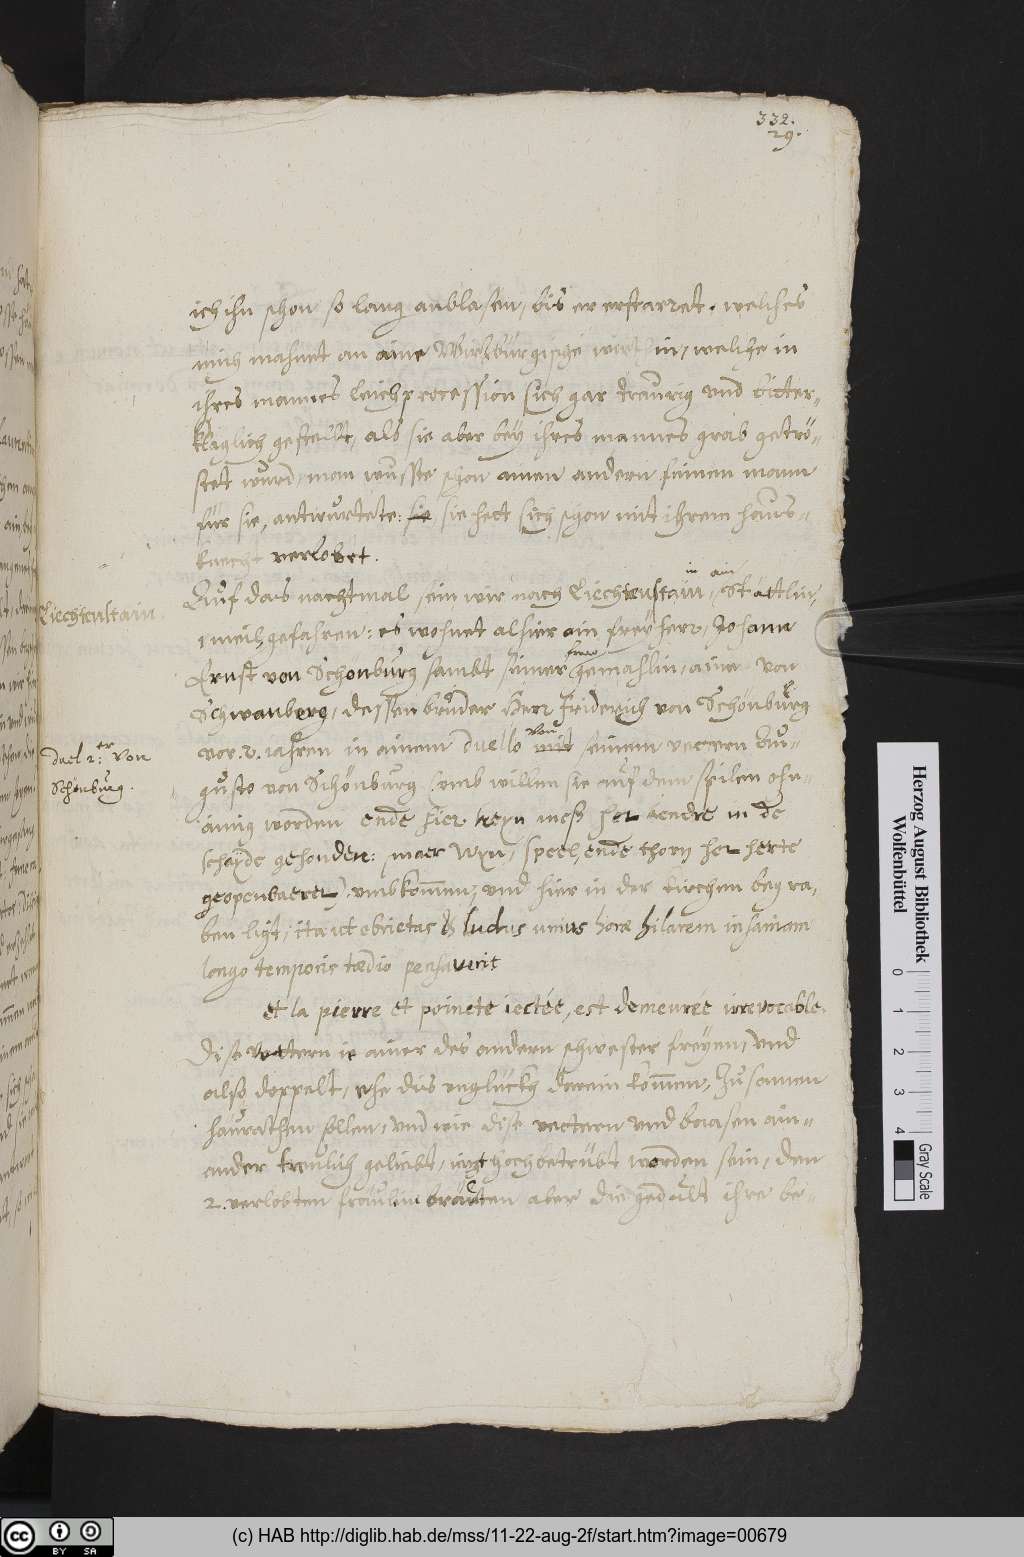 332.
29.
ich ihn schon so lang anblasen, bis er erstarret. welches
mich mahnet an aine Würzburgische wirtin, welche in
ihres mannes leichprocession sich gar traurig und bitter-
kläglich gestellt, als sie aber bey ihres mannes grab getrö-
stet wurd, man wusste schon ainen andern feinen mann
für sie, antwurtete: sie hett sich schon mit ihrem haus-
knecht verlobet.
Liechtenstain.
Auf das nachtmal, sein wir nach Liechtenstain, in ain Stättlin,
1 meil, gefahren: es wohnet alhier ain freyherr, Johann
Ernst von Schönburg sambt seiner frau gemahlin, aine von
Schwanberg, dessen bruder Herr Friderich von Schönburg
Duel 2.er von
Schönburg.
vor 2. iahren in ainem duello von seinem vettern Au-
gusto von Schönburg (umb willen sie auf dem spilen ohn-
ainig worden ende hier heyn mess het aendre in de
schayde gesonden: maer wyn, speel, ende thorn het herte
geopenbaeret) umbkommen, und hier in der kirchen begra-
ben ligt, ita ut ebrietas & ludus unius horæ hilarem insaniam
longo temporis tædio pensaverit
et la pierre et poincte iectée, est demeurée irrevocable.
Dise vettern ie ainer des andern schwester freyen, und
also doppelt, ehe dis unglück darein kommen, zusamen
heurathen sollen, und wie dise vettern und baasen ain-
ander treulich geliebt, ietzt hoch betrübt worden sein, den
2. verlobten fräulin bräuten aber die gedult ihre be-
Herzog August Bibliothek
Wolfenbüttel
0 1 2 3 4
Gray Scale
cc BY SA
(c) HAB http://diglib.hab.de/mss/11-22-aug-2f/start.htm?image=00679